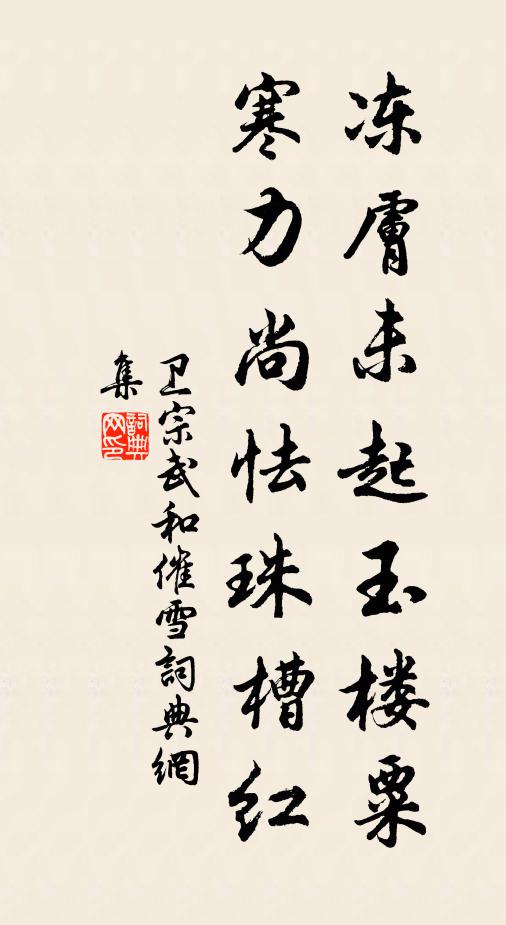 冻膚未起玉楼粟
寒力尚怯珠槽红
卫宗武和催雪詞典網
集
詞典网印